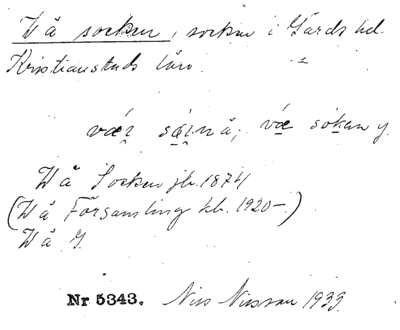 Vä socken, socken i Gärds hd.
Kristianstads län.
væ̨ṛ sǫ́i̯nå; væ sokən y.
Wä Socken jb. 1874
(Wä Församling kb. 1920–)
Wä G.
Nr 5343. Nils Nilsson 1933.